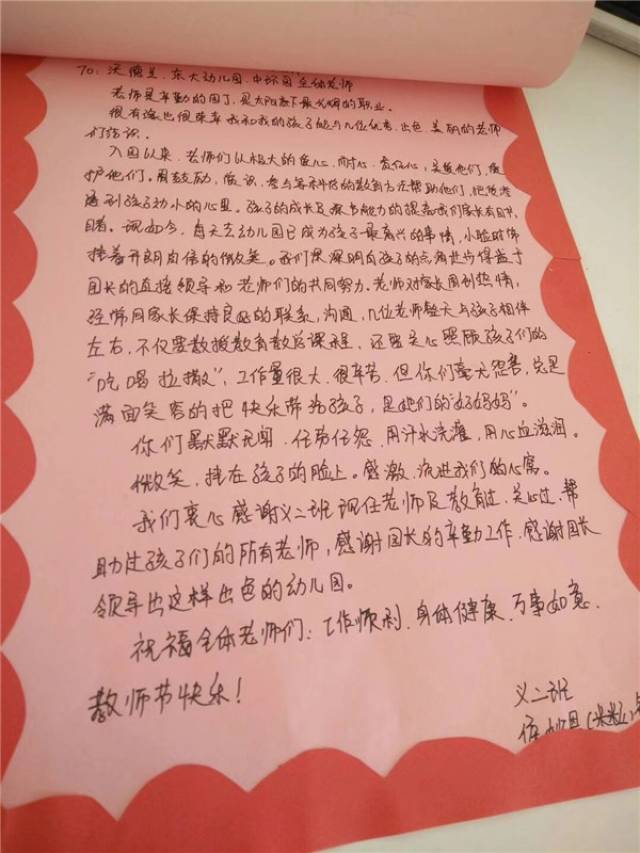 TO：沃德兰．东大幼儿园．中环园全体老师
老师是辛勤的园丁，是太阳底下最光辉的职业。
很有缘也很荣幸我和我的孩子能与几位优秀．出色．美丽的老师
们结识．
入园以来．老师们以极大的爱心．耐心．责任心，关爱他们，呵
护他们。用鼓励，赏识，参与等科学的教育方法帮助他们，把爱
到孩子幼小的心里。孩子的成长及综合能力的提高我们家长有目共
睹。现如今，每天去幼儿园已成为孩子最高兴的事情，小脸时常
挂着开朗自信的微笑。我们深深明白孩子的点滴进步得益于
园长的直接领导和老师们的共同努力．老师对家长周到热情，
经常同家长保持良好的联系，沟通，几位老师整天与孩子相伴
左右，不仅要教授教育教学课程，还要关心照顾孩子们的
“吃喝拉撒”，工作量很大．很辛苦．但你们毫无怨言，总是
满面笑容的把快乐带给孩子，是她们的“好妈妈”。
你们默默无闻．任劳任怨．用汗水浇灌，用心血滋润。
微笑，挂在孩子的脸上。感激，流进我们的心窝。
我们衷心感谢义二班现任老师及教育过．关心过．帮
助过孩子们的所有老师，感谢园长的辛勤工作．感谢园长
领导出这样出色的幼儿园。
祝福全体老师们：工作顺利．身体健康．万事如意．
教师节快乐！
义二班